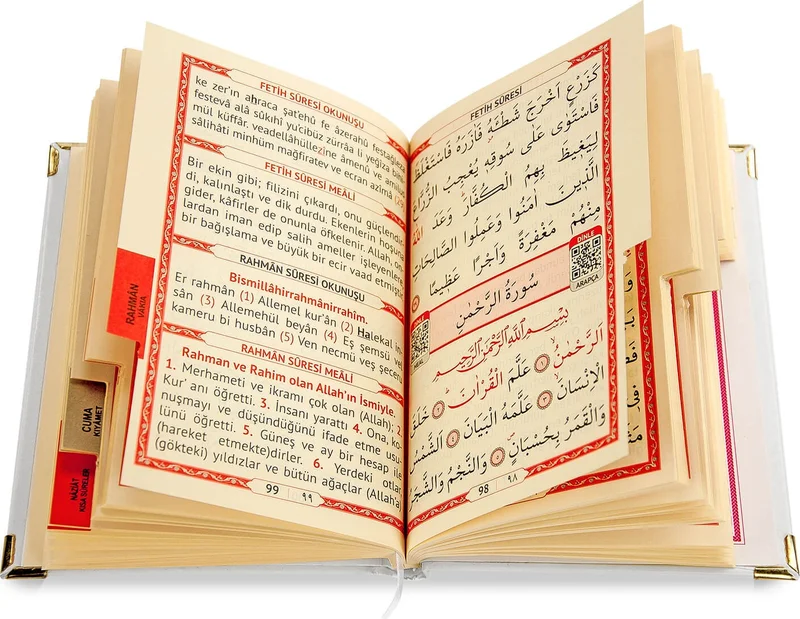 FETİH SÛRESİ OKUNUŞU
ke zer'ın ahrace şat'ehû fe âzerahu festağleza
festevâ alâ sûkıhî yu'cibüz zürrâa li yeğîza bihi
mül küffâr, veadellâhüllezîne âmenû ve amilus
sâlihâti minhüm mağfiratev ve ecran azîmâ (29)
FETİH SÛRESİ MEÂLİ
Bir ekin gibi; filizini çıkardı, onu güçlendir
di, kalınlaştı ve dik durdu. Ekenlerin hoşuna
gider, kâfirler de onunla öfkelenir. Allah, on
lardan iman edip salih ameller işleyenlere
bir bağışlama ve büyük bir ecir vaad etmiştir
RAHMÂN SÛRESİ OKUNUŞU
Bismillâhirrahmânirrahîm.
Er rahmân (1) Allemel kur'ân (2) Halekal in-
sân (3) Allemehül beyân (4) Eş şemsü vel
kameru bi husbân (5) Ven necmü veş şeceru
RAHMÂN SÛRESİ MEÂLİ
Rahman ve Rahim olan Allah'ın İsmiyle.
1. Merhameti ve ikramı çok olan (Allah); 2.
Kur' anı öğretti. 3. İnsanı yarattı 4. Ona, ko-
nuşmayı ve düşündüğünü ifade etme usu-
lünü öğretti. 5. Güneş ve ay bir hesap ile
(hareket etmekte)dirler. 6. Yerdeki otlar,
(gökteki) yıldızlar ve bütün ağaçlar (Allah'a)
99 ٩٩
RAHMÂN
VÂKIA
CUMA
KIYÂMET
NÂZİÂT
KISA SÛRELER
FETİH SÛRESİ
كَزَرْعٍ اَخْرَجَ شَطْـَٔهُ فَاٰزَرَهُ فَاسْتَغْلَظَ
فَاسْتَوٰى عَلٰى سُوقِهِ يُعْجِبُ الزُّرَّاعَ
لِيَغِيظَ بِهِمُ الْكُفَّارَ وَعَدَ اللّٰهُ
الَّذِينَ اٰمَنُوا وَعَمِلُوا الصَّالِحَاتِ
مِنْهُمْ مَغْفِرَةً وَاَجْرًا عَظِيمًا
DİNLE
ARAPÇA
سُورَةُ الرَّحْمٰنِ
MEAL
بِسْمِ اللّٰهِ الرَّحْمٰنِ الرَّحِيمِ
اَلرَّحْمٰنُ ١ عَلَّمَ الْقُرْاٰنَ ٢ خَلَقَ
الْاِنْسَانَ ٣ عَلَّمَهُ الْبَيَانَ ٤ اَلشَّمْسُ
وَالْقَمَرُ بِحُسْبَانٍ ٥ وَالنَّجْمُ وَالشَّجَرُ
98 ٩٨